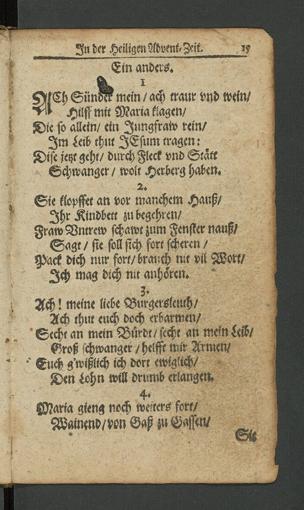 In der Heiligen Advent-Zeit. 19
Ein anders.
1
ACh Sünder mein / ach traur vnd wein /
Hilff mit Maria klagen /
Die so allein / ein Jungfraw rein /
Im Leib thut JEsum tragen:
Dise jetzt geht / durch Fleck vnd Stätt
Schwanger / wolt Herberg haben.
2.
Sie klopffet an vor manchem Hauß /
Ihr Kindbett zu begehren /
Fraw Vntrew schawt zum Fenster nauß /
Sagt / sie soll sich fort scheren /
Pack dich nur fort / brauch nit vil Wort /
Ich mag dich nit anhören.
3.
Ach! meine liebe Burgersleuth /
Ach thut euch doch erbarmen /
Secht an mein Bürdt / secht an mein Leib /
Groß schwanger / helfft mir Armen /
Euch g'wißlich ich dort ewiglich /
Den Lohn will drumb erlangen.
4.
Maria gieng noch weiters fort /
Wainend / von Gaß zu Gassen /
Sie